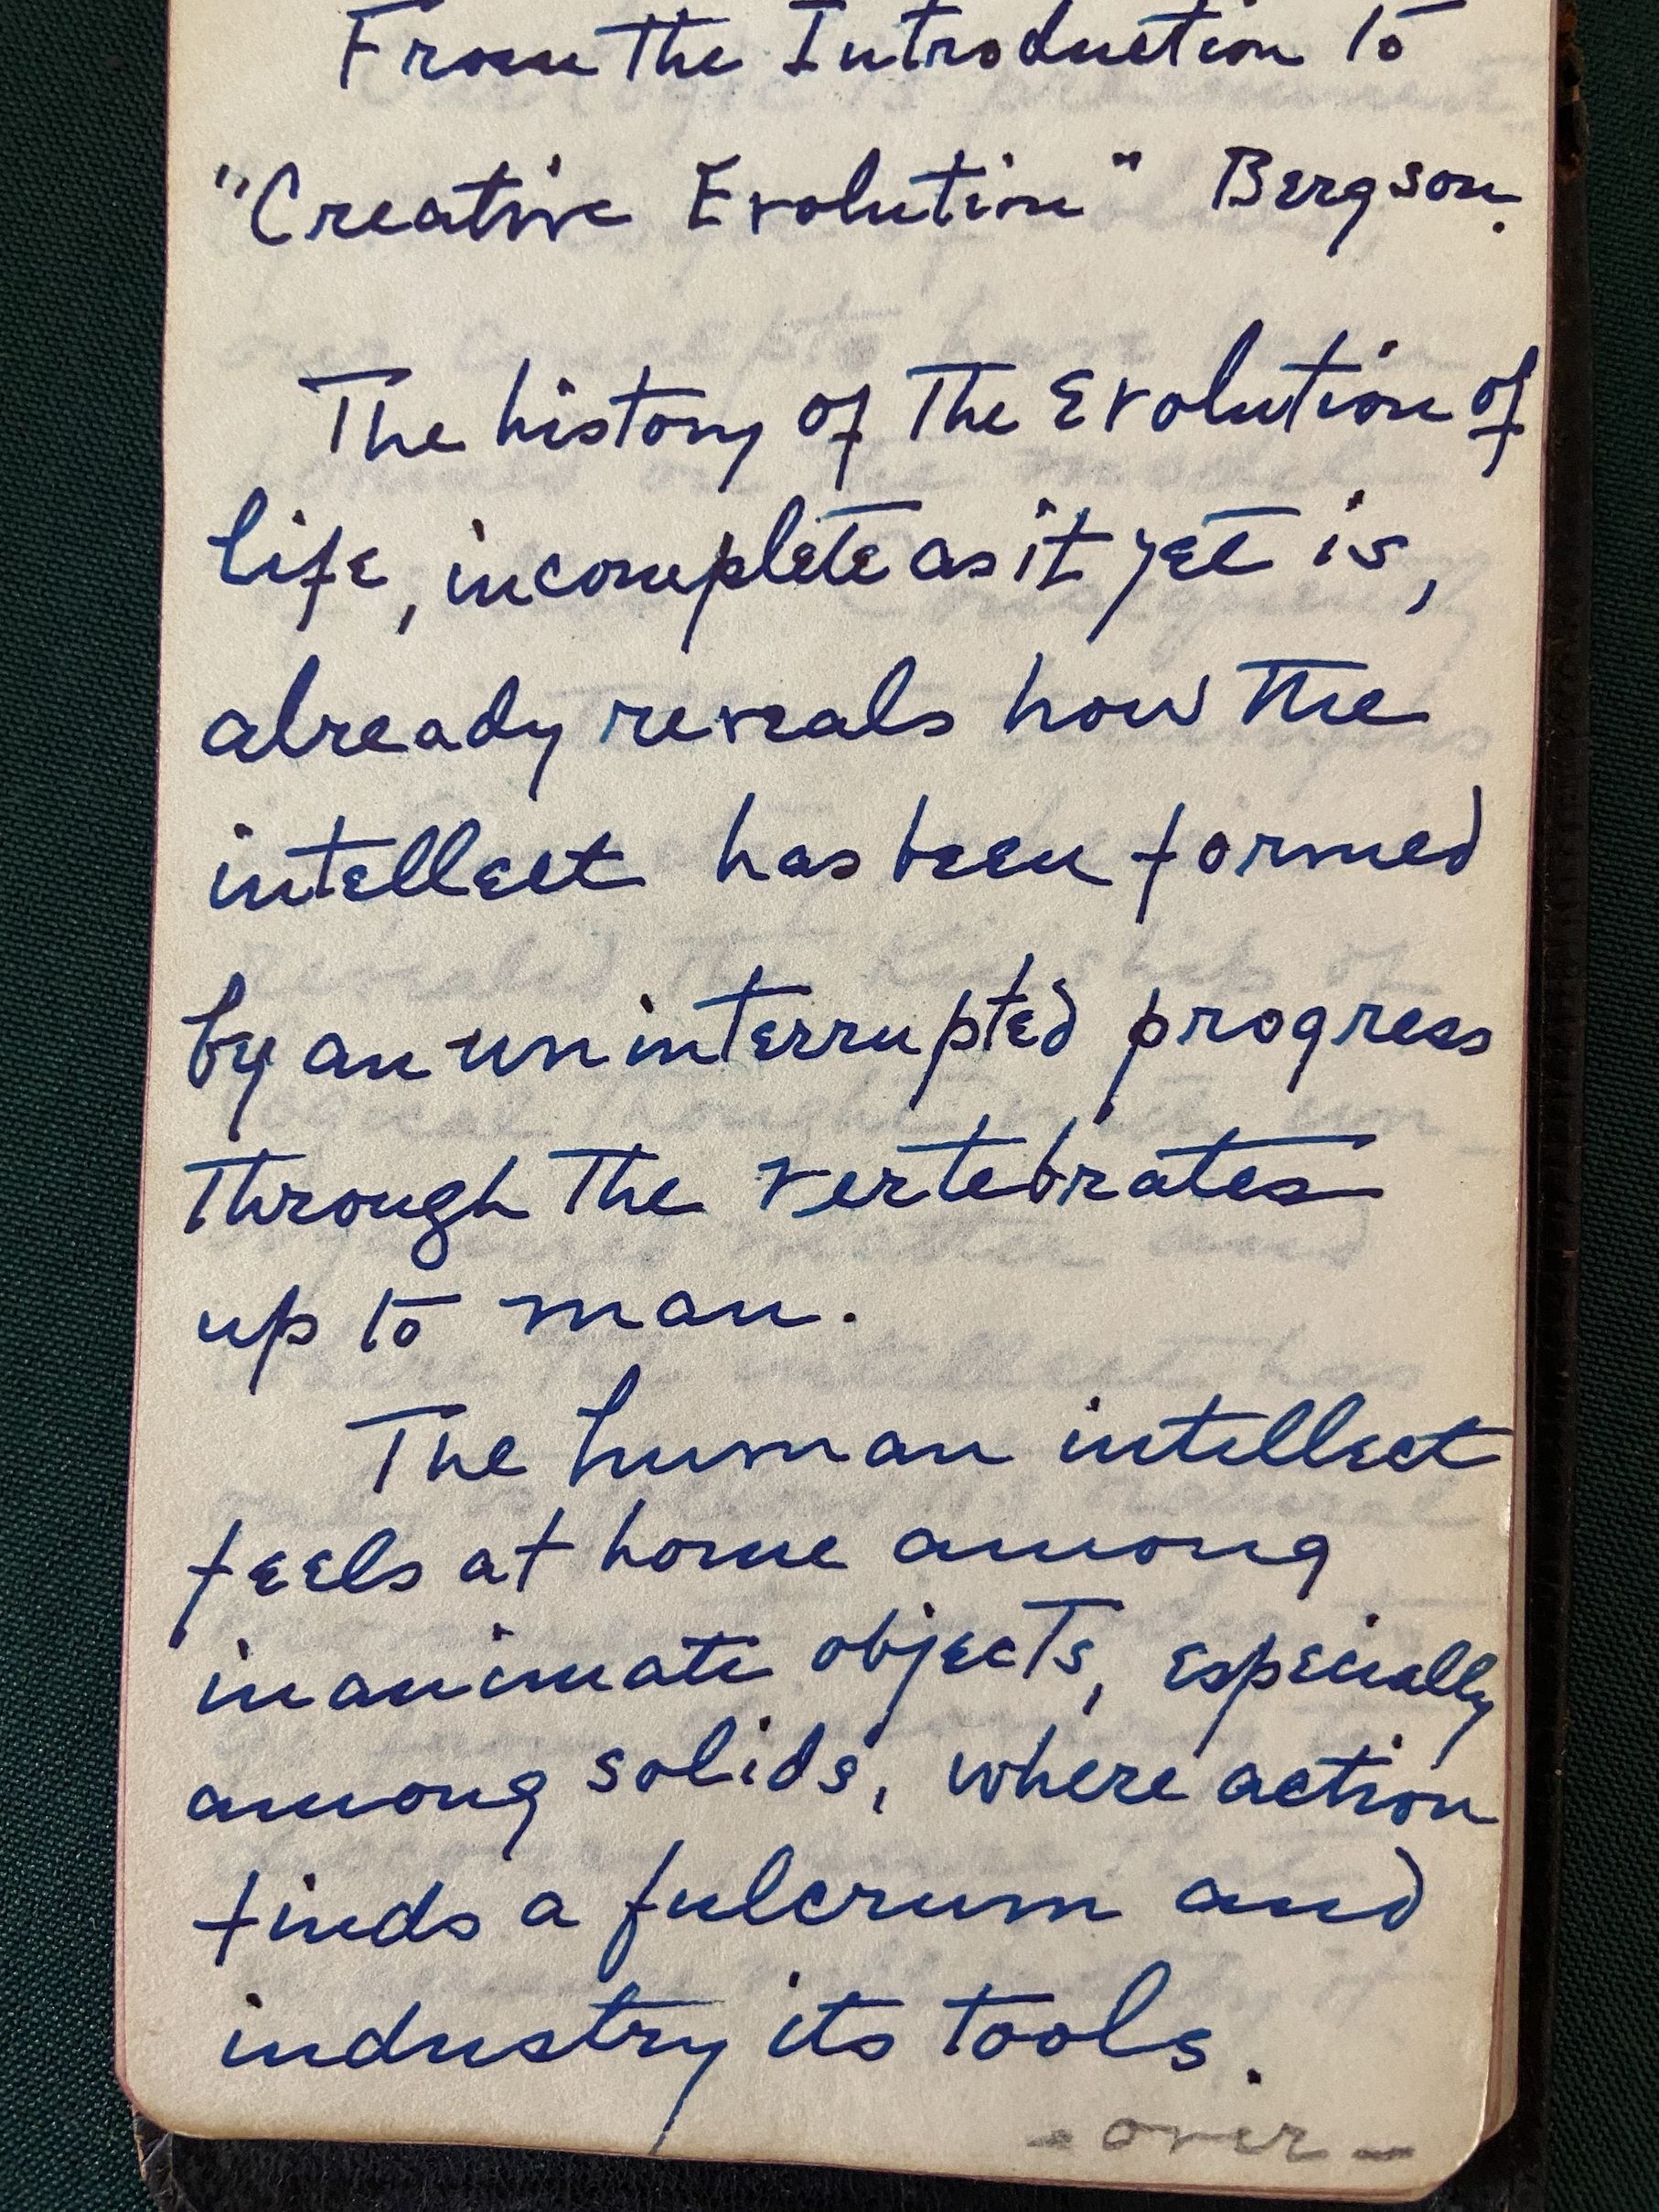 From the Introduction to
"Creative Evolution" Bergson.
The history of the Evolution of
life, incomplete as it yet is,
already reveals how the
intellect has been formed
by an uninterrupted progress
through the vertebrates
up to man.
The human intellect
feels at home among
inanimate objects, especially
among solids, where action
finds a fulcrum and
industry its tools.
- over -